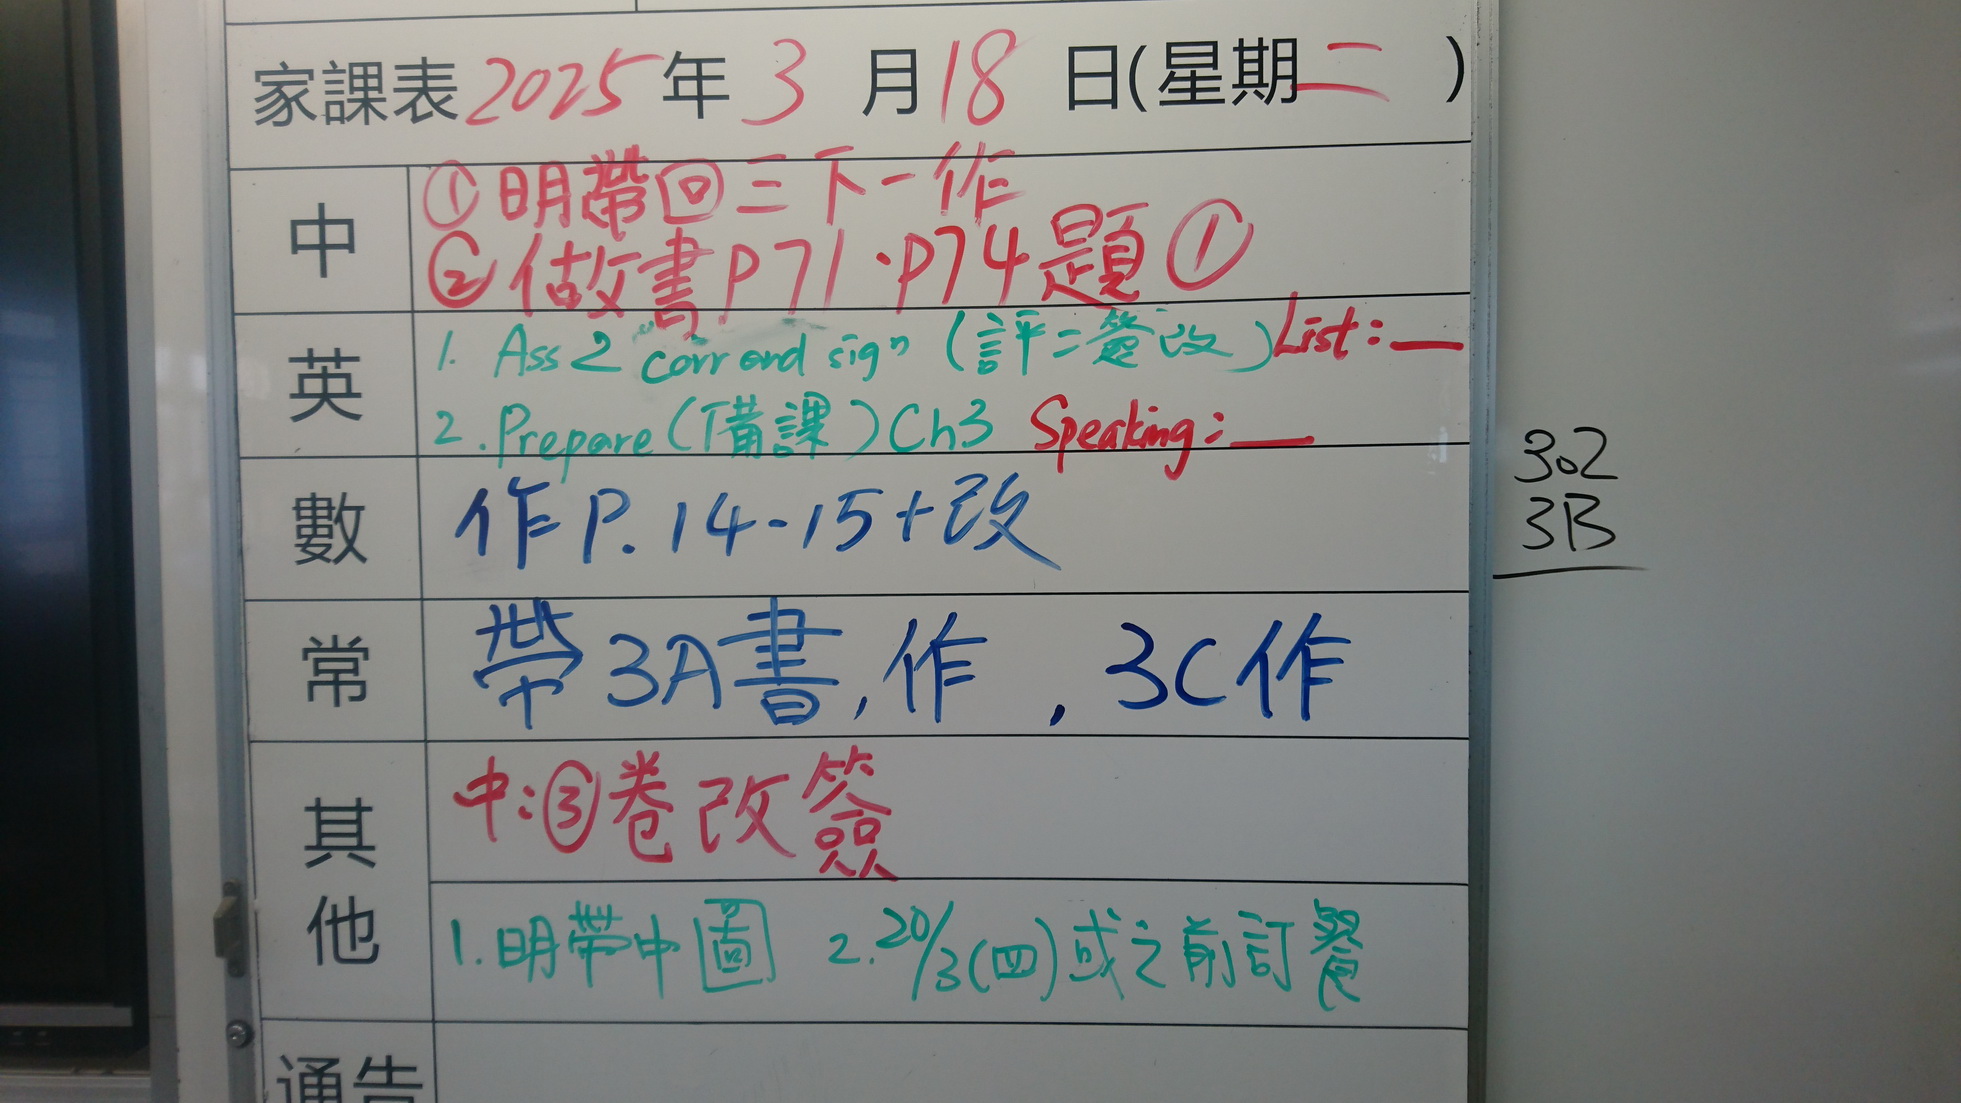 家課表 2025 年 3 月 18 日(星期二)
中
①明帶回三下一作
②做書P71·P74題①
英
1. Ass 2 "corr and sign" (評二簽改) List: __
2. Prepare (備課) Ch3 Speaking: __
數
作P.14-15+改
常
帶3A書,作 , 3C作
其他
中:③卷改簽
1.明帶中圖 2. 20/3(四)或之前訂餐
通告
302
3B